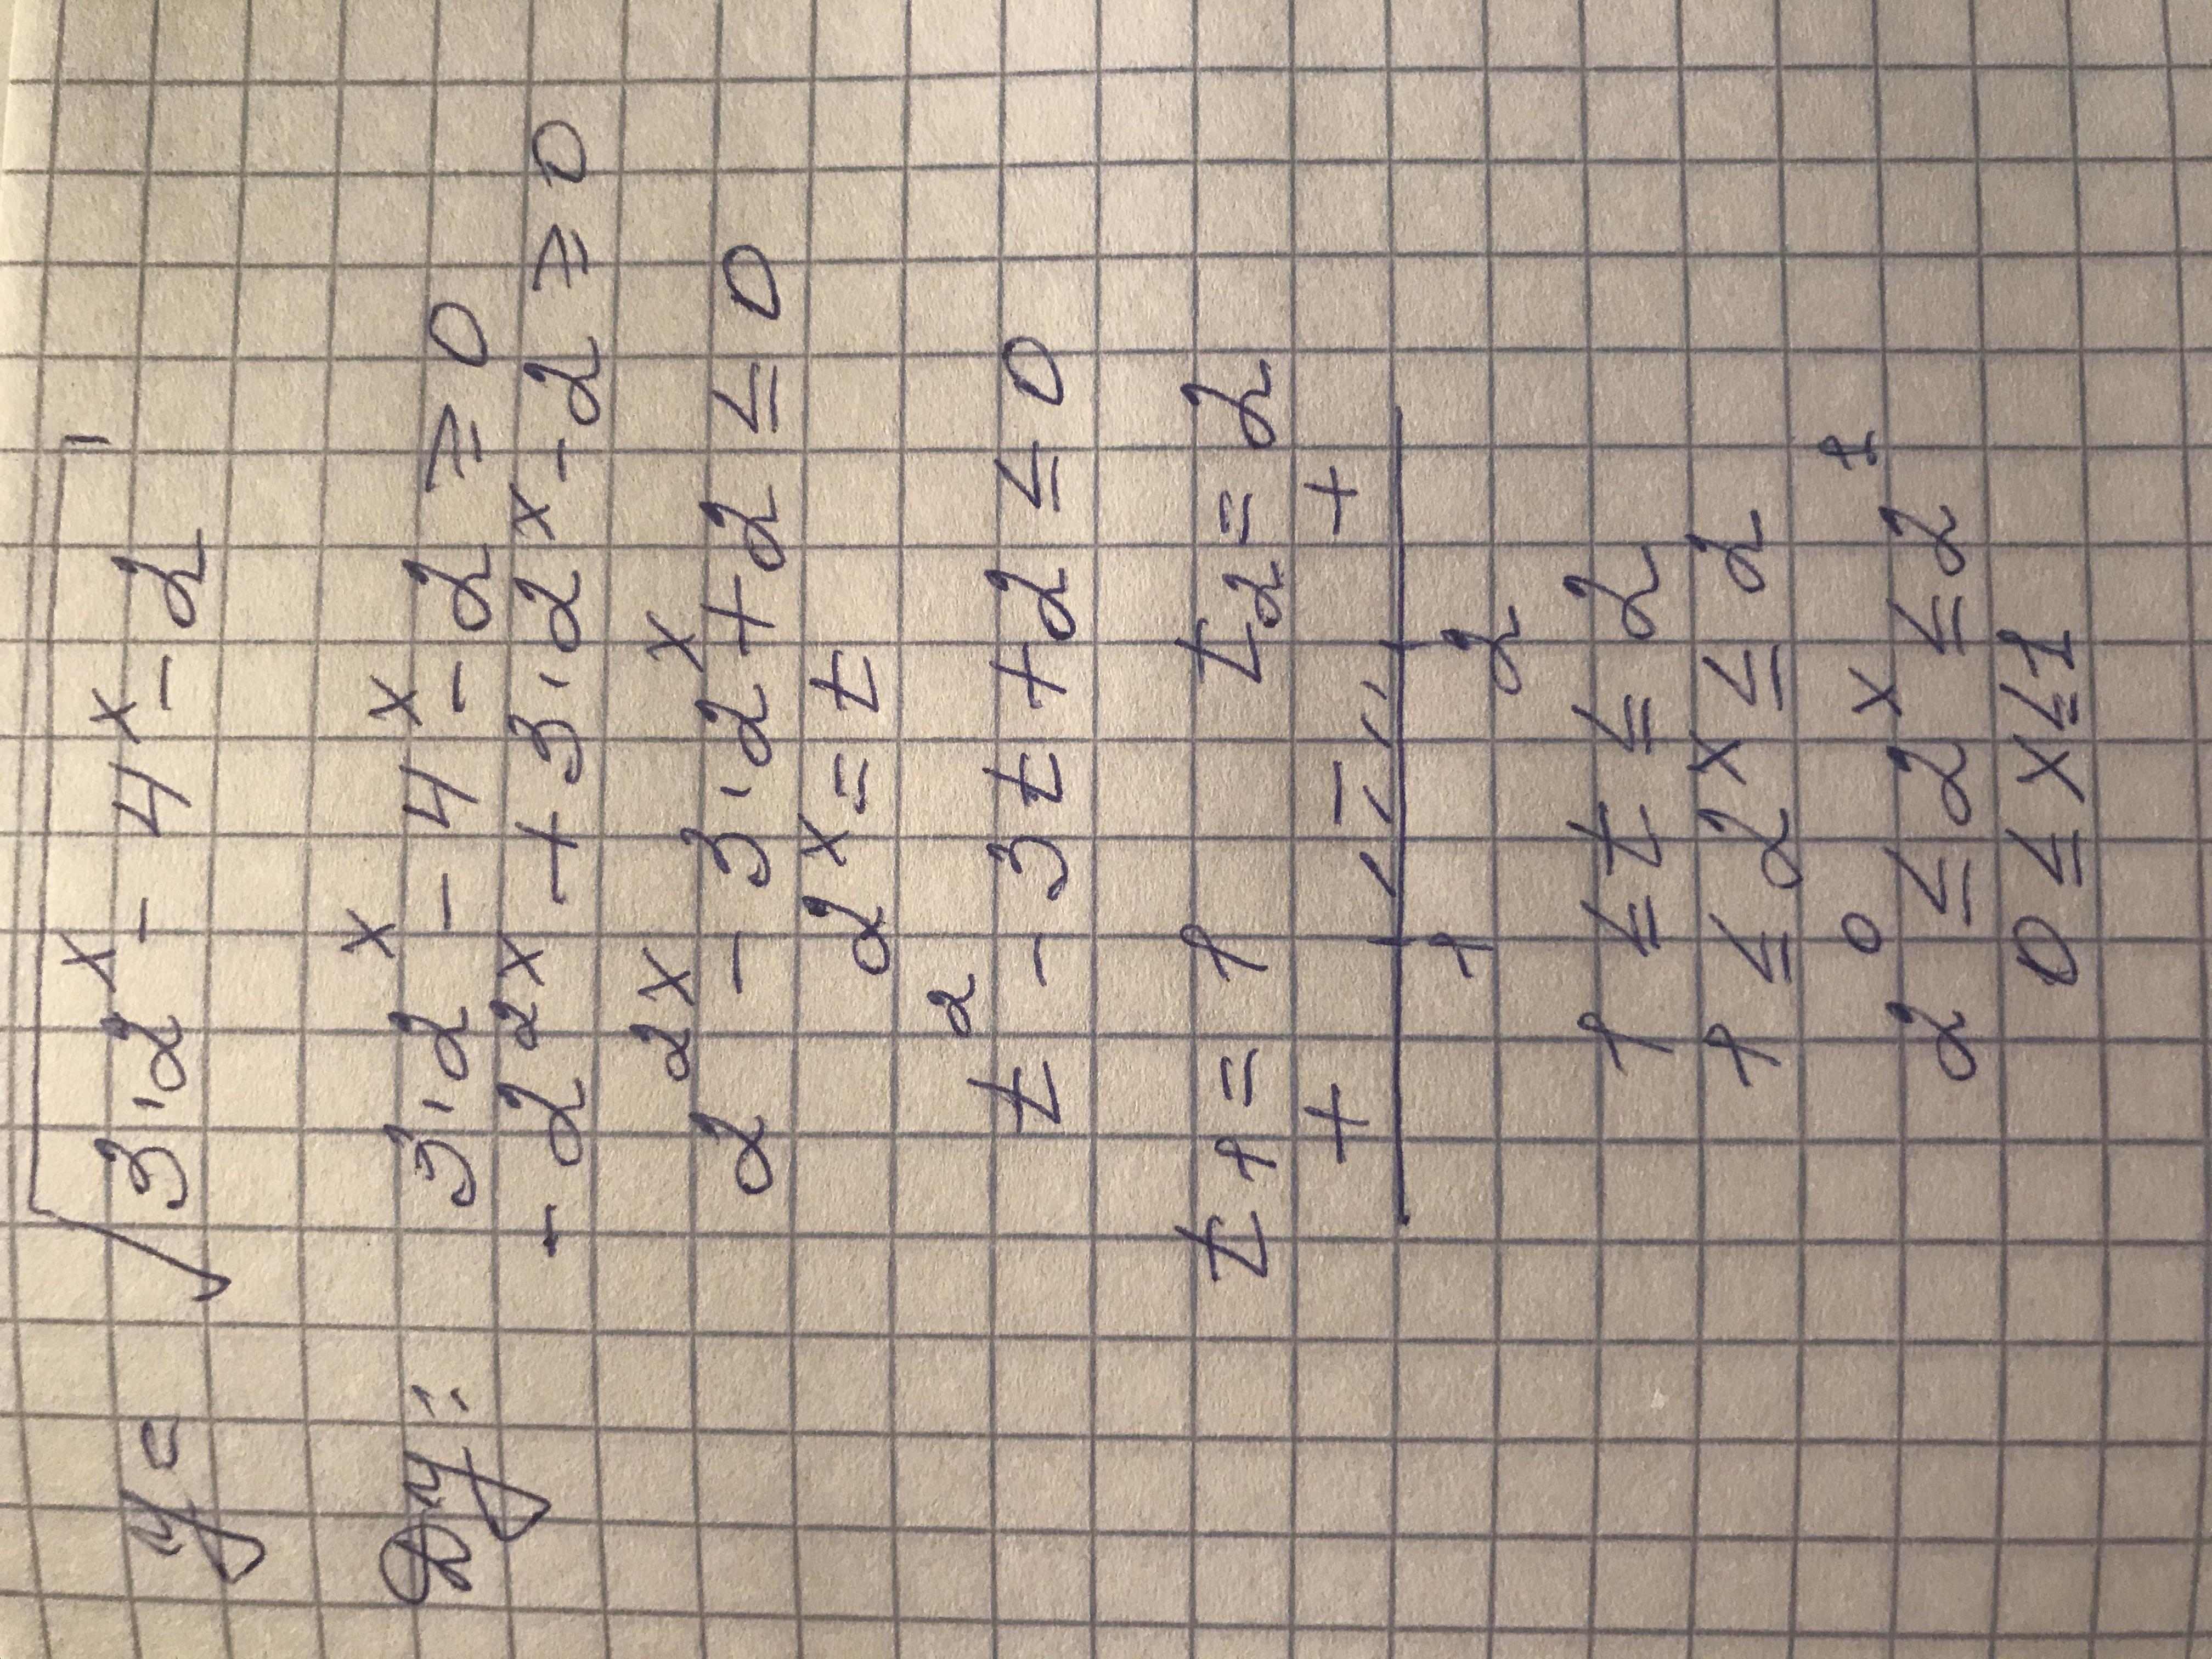 y = √(3·2^x - 4^x - 2)
Dy: 3·2^x - 4^x - 2 ≥ 0
- 2^2x + 3·2^x - 2 ≥ 0
2^2x - 3·2^x + 2 ≤ 0
2^x = t
t^2 - 3t + 2 ≤ 0
t1 = 1 t2 = 2
+ - +
1 2
1 ≤ t ≤ 2
1 ≤ 2^x ≤ 2
2^0 ≤ 2^x ≤ 2^1
0 ≤ x ≤ 1